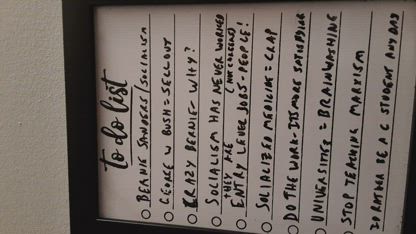 to do list
BERNIE SANDERS/SOCIALISM
GEORGE W BUSH = SELLOUT
CRAZY BERNIE - WHY?
SOCIALISM HAS NEVER WORKED
THEY ARE (NOT CAREERS)
ENTRY LEVEL JOBS - PEOPLE!
SOCIALIZED MEDICINE = CRAP
DO THE WORK - ITS MORE SATISFYING
UNIVERSITIES = BRAINWASHING
STOP TEACHING MARXISM
I'D RATHER BE A C STUDENT ANY DAY